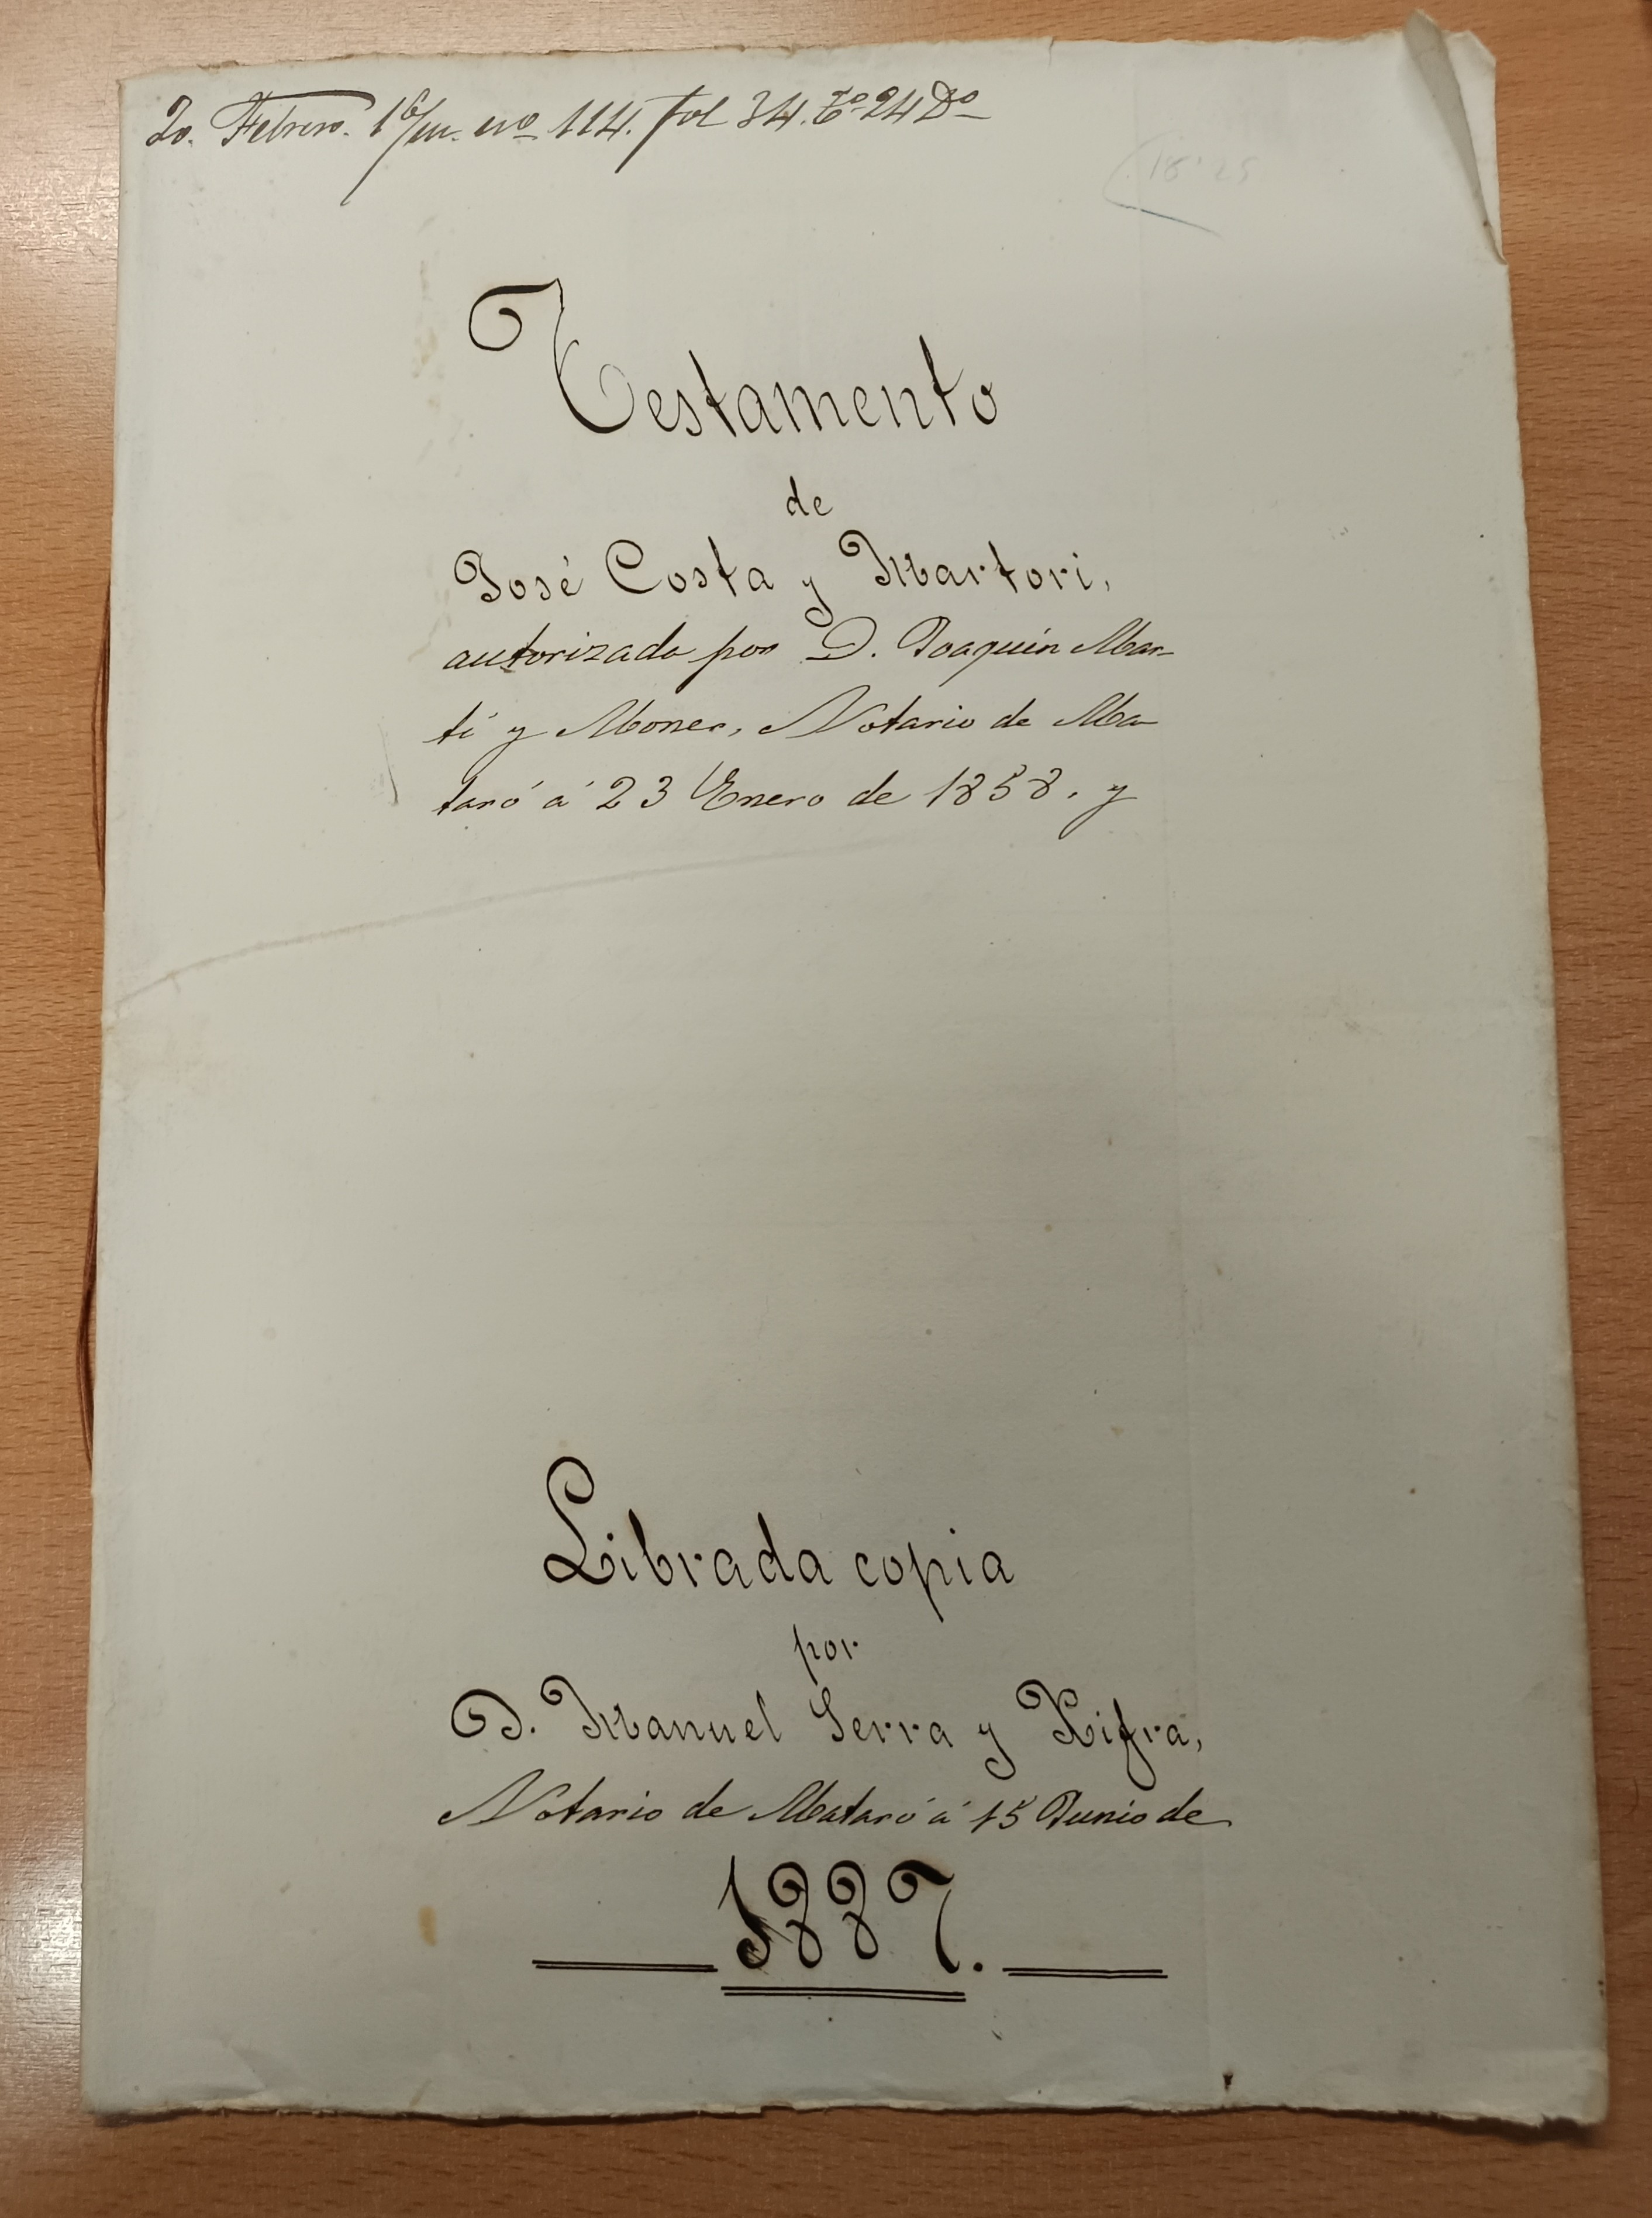 20. Febrero. nº 114. fol 34. Tº 24 Dº
18'25
Testamento
de
José Costa y Martori,
autorizado por D. Joaquin Mar-
ti y Mones, Notario de Ma-
taró á 23 Enero de 1858, y
Librada copia
por
D. Manuel Serra y Xifra,
Notario de Mataró á 15 Junio de
1887.